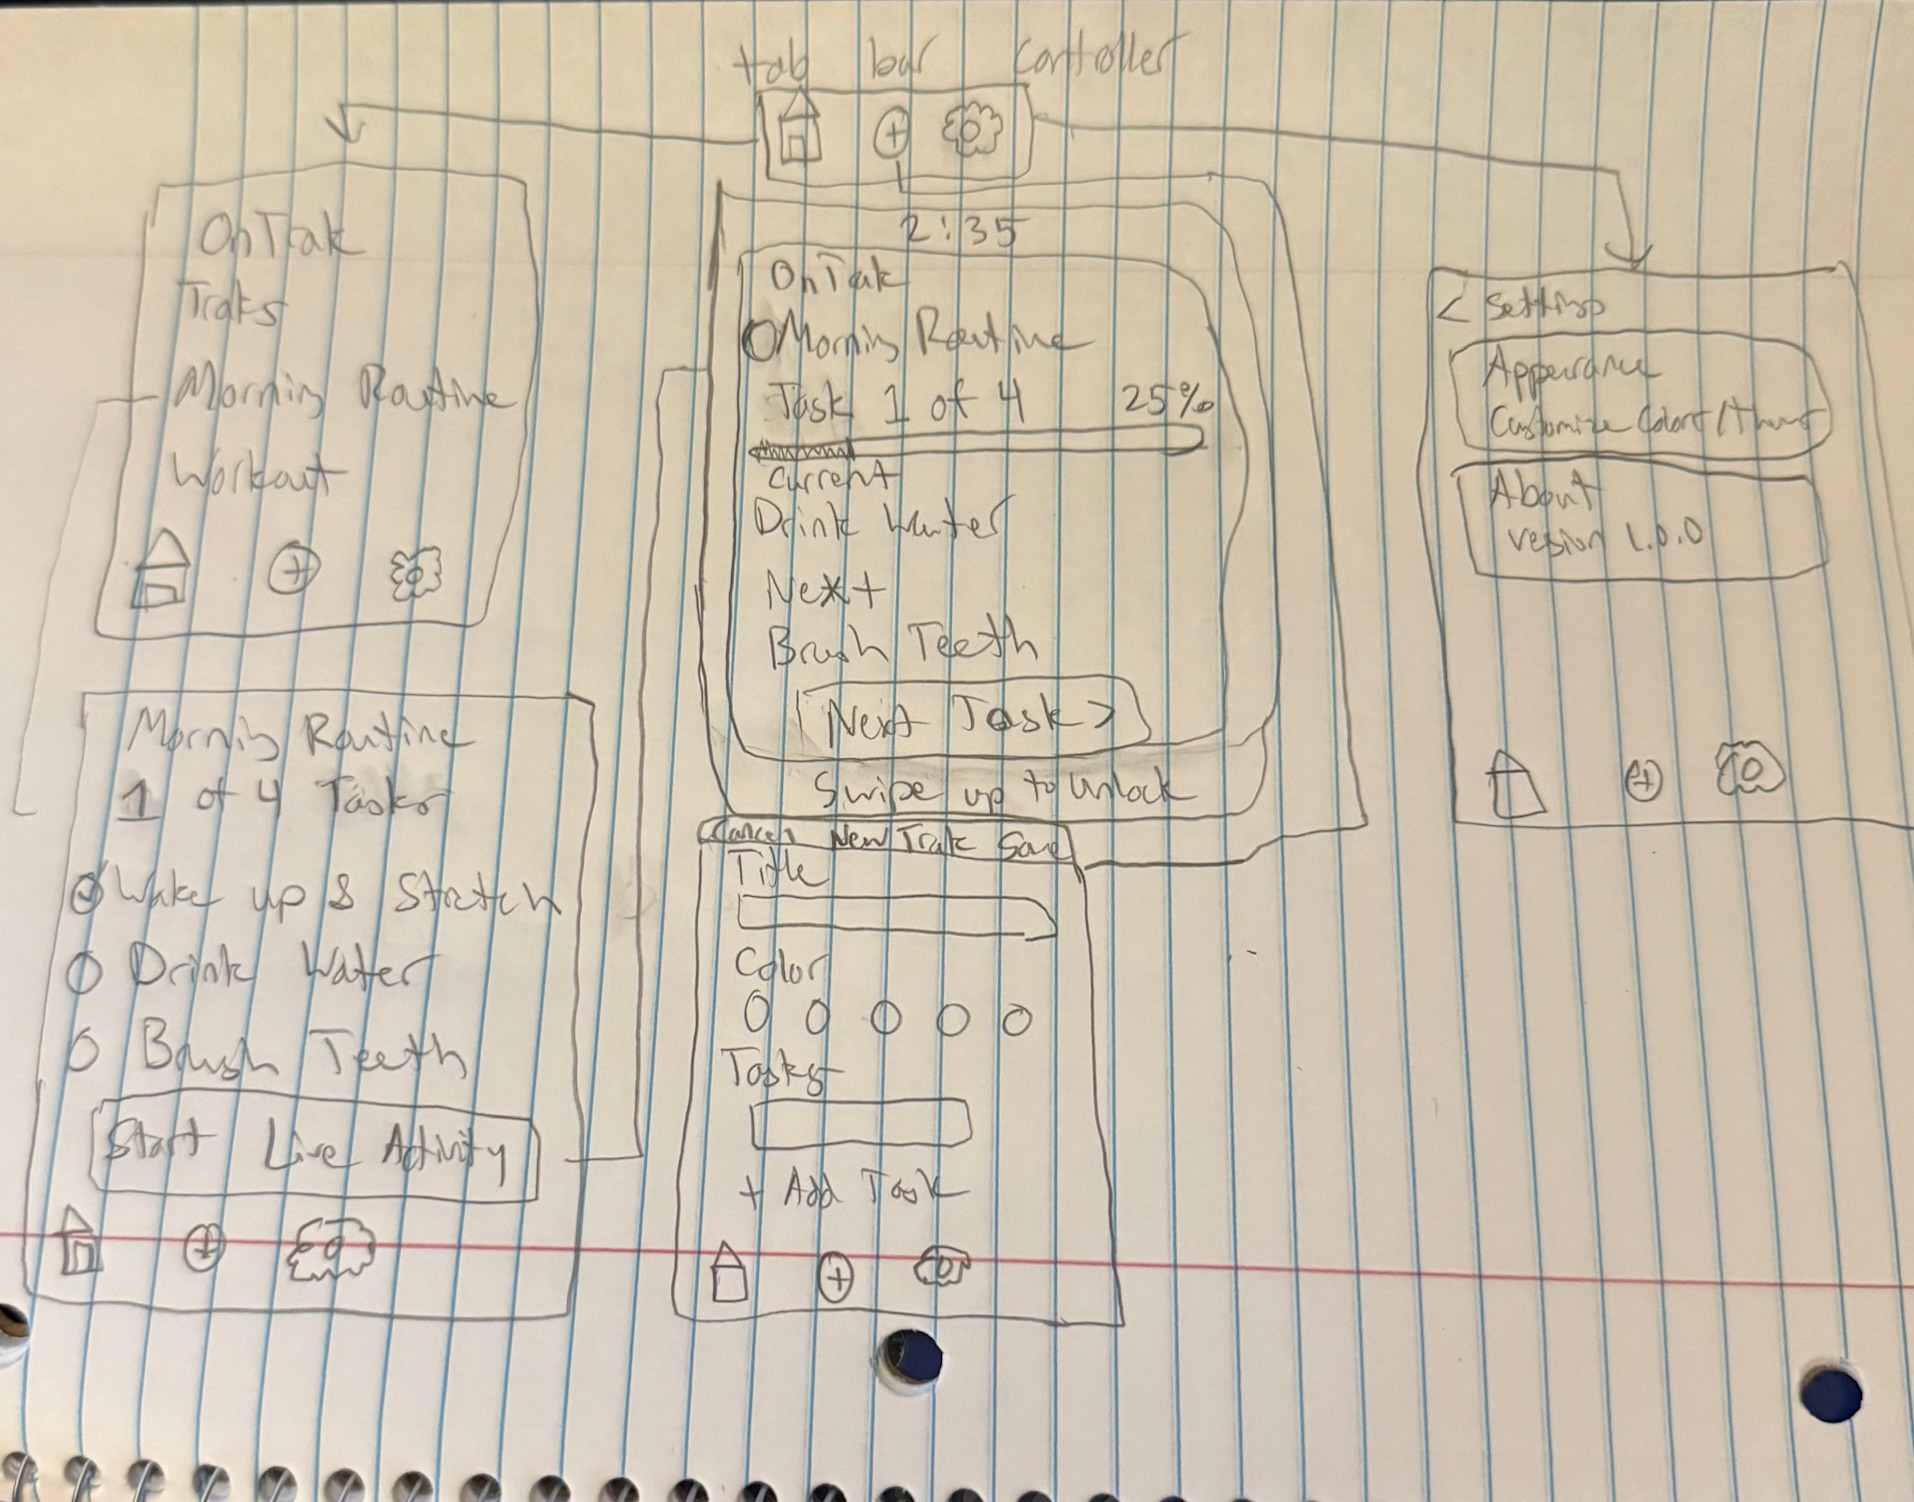 tab bar controller
OnTrak
Traks
Morning Routine
Workout
2:35
OnTrak
Morning Routine
Task 1 of 4 25%
Current
Drink Water
Next
Brush Teeth
Next Task >
Swipe up to unlock
< Settings
Appearance
Customize Colors/
About
version 1.0.0
Morning Routine
1 of 4 Tasks
Wake up & Stretch
Drink Water
Brush Teeth
Start Live Activity
Cancel New Trak Save
Title
Color
Tasks
+ Add Task